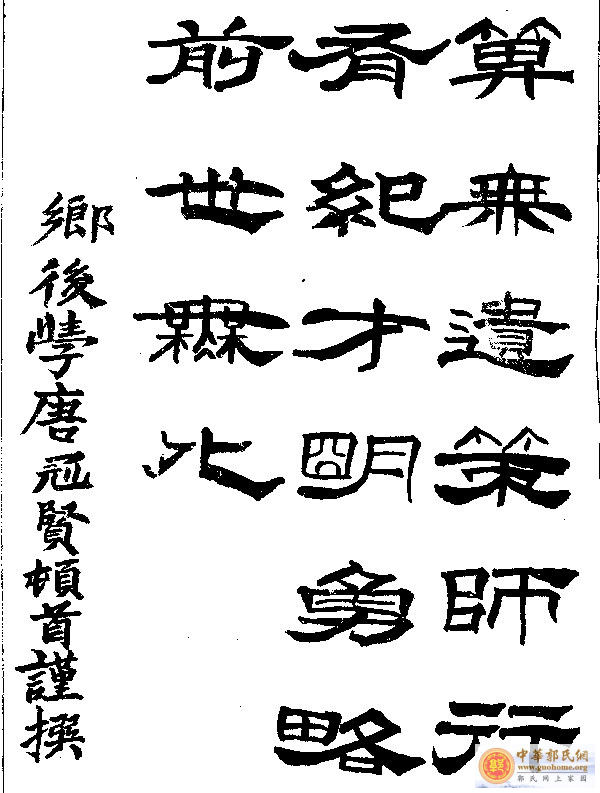 算無遺策師行
有紀才明勇略
前世無比
鄉後學唐冠賢頓首謹撰
中華郭氏網
www.guohome.org
郭氏网上家园